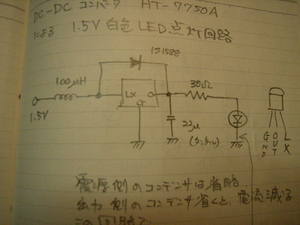 DC-DC コンバータ HT-7750A
による 1.5V 白色 LED 点灯回路
1S1588
100μH
LX
O
30Ω
1.5V
22μ
(タンタル)
GND
OUT
LX
電源側のコンデンサは省略
出力側のコンデンサ省くと、電流減る
この回路で